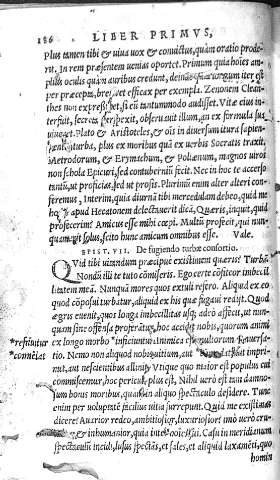 186 LIBER PRIMVS,
Plus tamen tibi & uiua uox & conuictus, quàm oratio prode-
rit. In rem præsentem uenias oportet. Primum quia hoīes am-
plius oculis quàm auribus credunt, deinde quia longum iter est
per præcepta, breue & efficax per exempla. Zenonem Clean-
thes non expressisset, si eū tantummodo audisset. Vitæ eius in-
terfuit, secreta perspexit, obseruauit illum, an ex formula sua
uiueret. Plato & Aristoteles, & oīs in diuersum itura sapien-
tum turba, plus ex moribus quā ex uerbis Socratis traxit.
Metrodorum, & Erymachum, & Polienum, magnos uiros
non schola Epicuri, sed contubernīū fecit. Nec in hoc te accerso
tantū, ut proficias, sed ut prosis. Plurimū enim alter alteri con-
feremus, Interim, quia diurnā tibi mercedulam debeo, quid me
hodie apud Hecatonem delectauerit dicā. Quæris, inquit, quid
profecerim? Amicus esse mihi cœpi. Multū profecit, qui nun-
quam erit solus, scito hunc amicum omnibus esse. Vale.
EPIST. VII. De fugiendo turbæ consortio.
Quid tibi uitandum præcipue existimem quæris? Turbā
Nondū illi te tuto cōmiseris. Ego certe cōfiteor imbecil-
litatem meā. Nunquā mores quos extuli refero. Aliquid ex eo
quod cōposui turbatur, aliquid ex his quæ fugaui redijt. Quod
ægris euenit, quos longa imbecillitas usque adeo affecit, ut nun-
quam sine offensa proferātur, hoc accidit nobis, quorum animi
*restituūtur ex longo morbo *reficiuntur. Inimica est multorum conuersa-
*cōmēdat tio. Nemo non aliquod nobis uitium, aut * aut impri-
mit, aut nescientibus allinit. Vtique quo maior est populus cui
commiscemur, hoc periculi plus est. Nihil uerò est tam damno-
sum bonis moribus, quàm in aliquo spectaculo desidere. Tunc
enim per uoluptatē facilius uitia surrepunt. Quid me existimas
dicere? Auarior redeo, ambitiosior, luxuriosior? imò uerò cru-
& inhumanior, quia inter homines fui. Casu in meridianum
spectaculum incidi, lusus spectās, et sales, et aliquid laxamēti, quo
homin